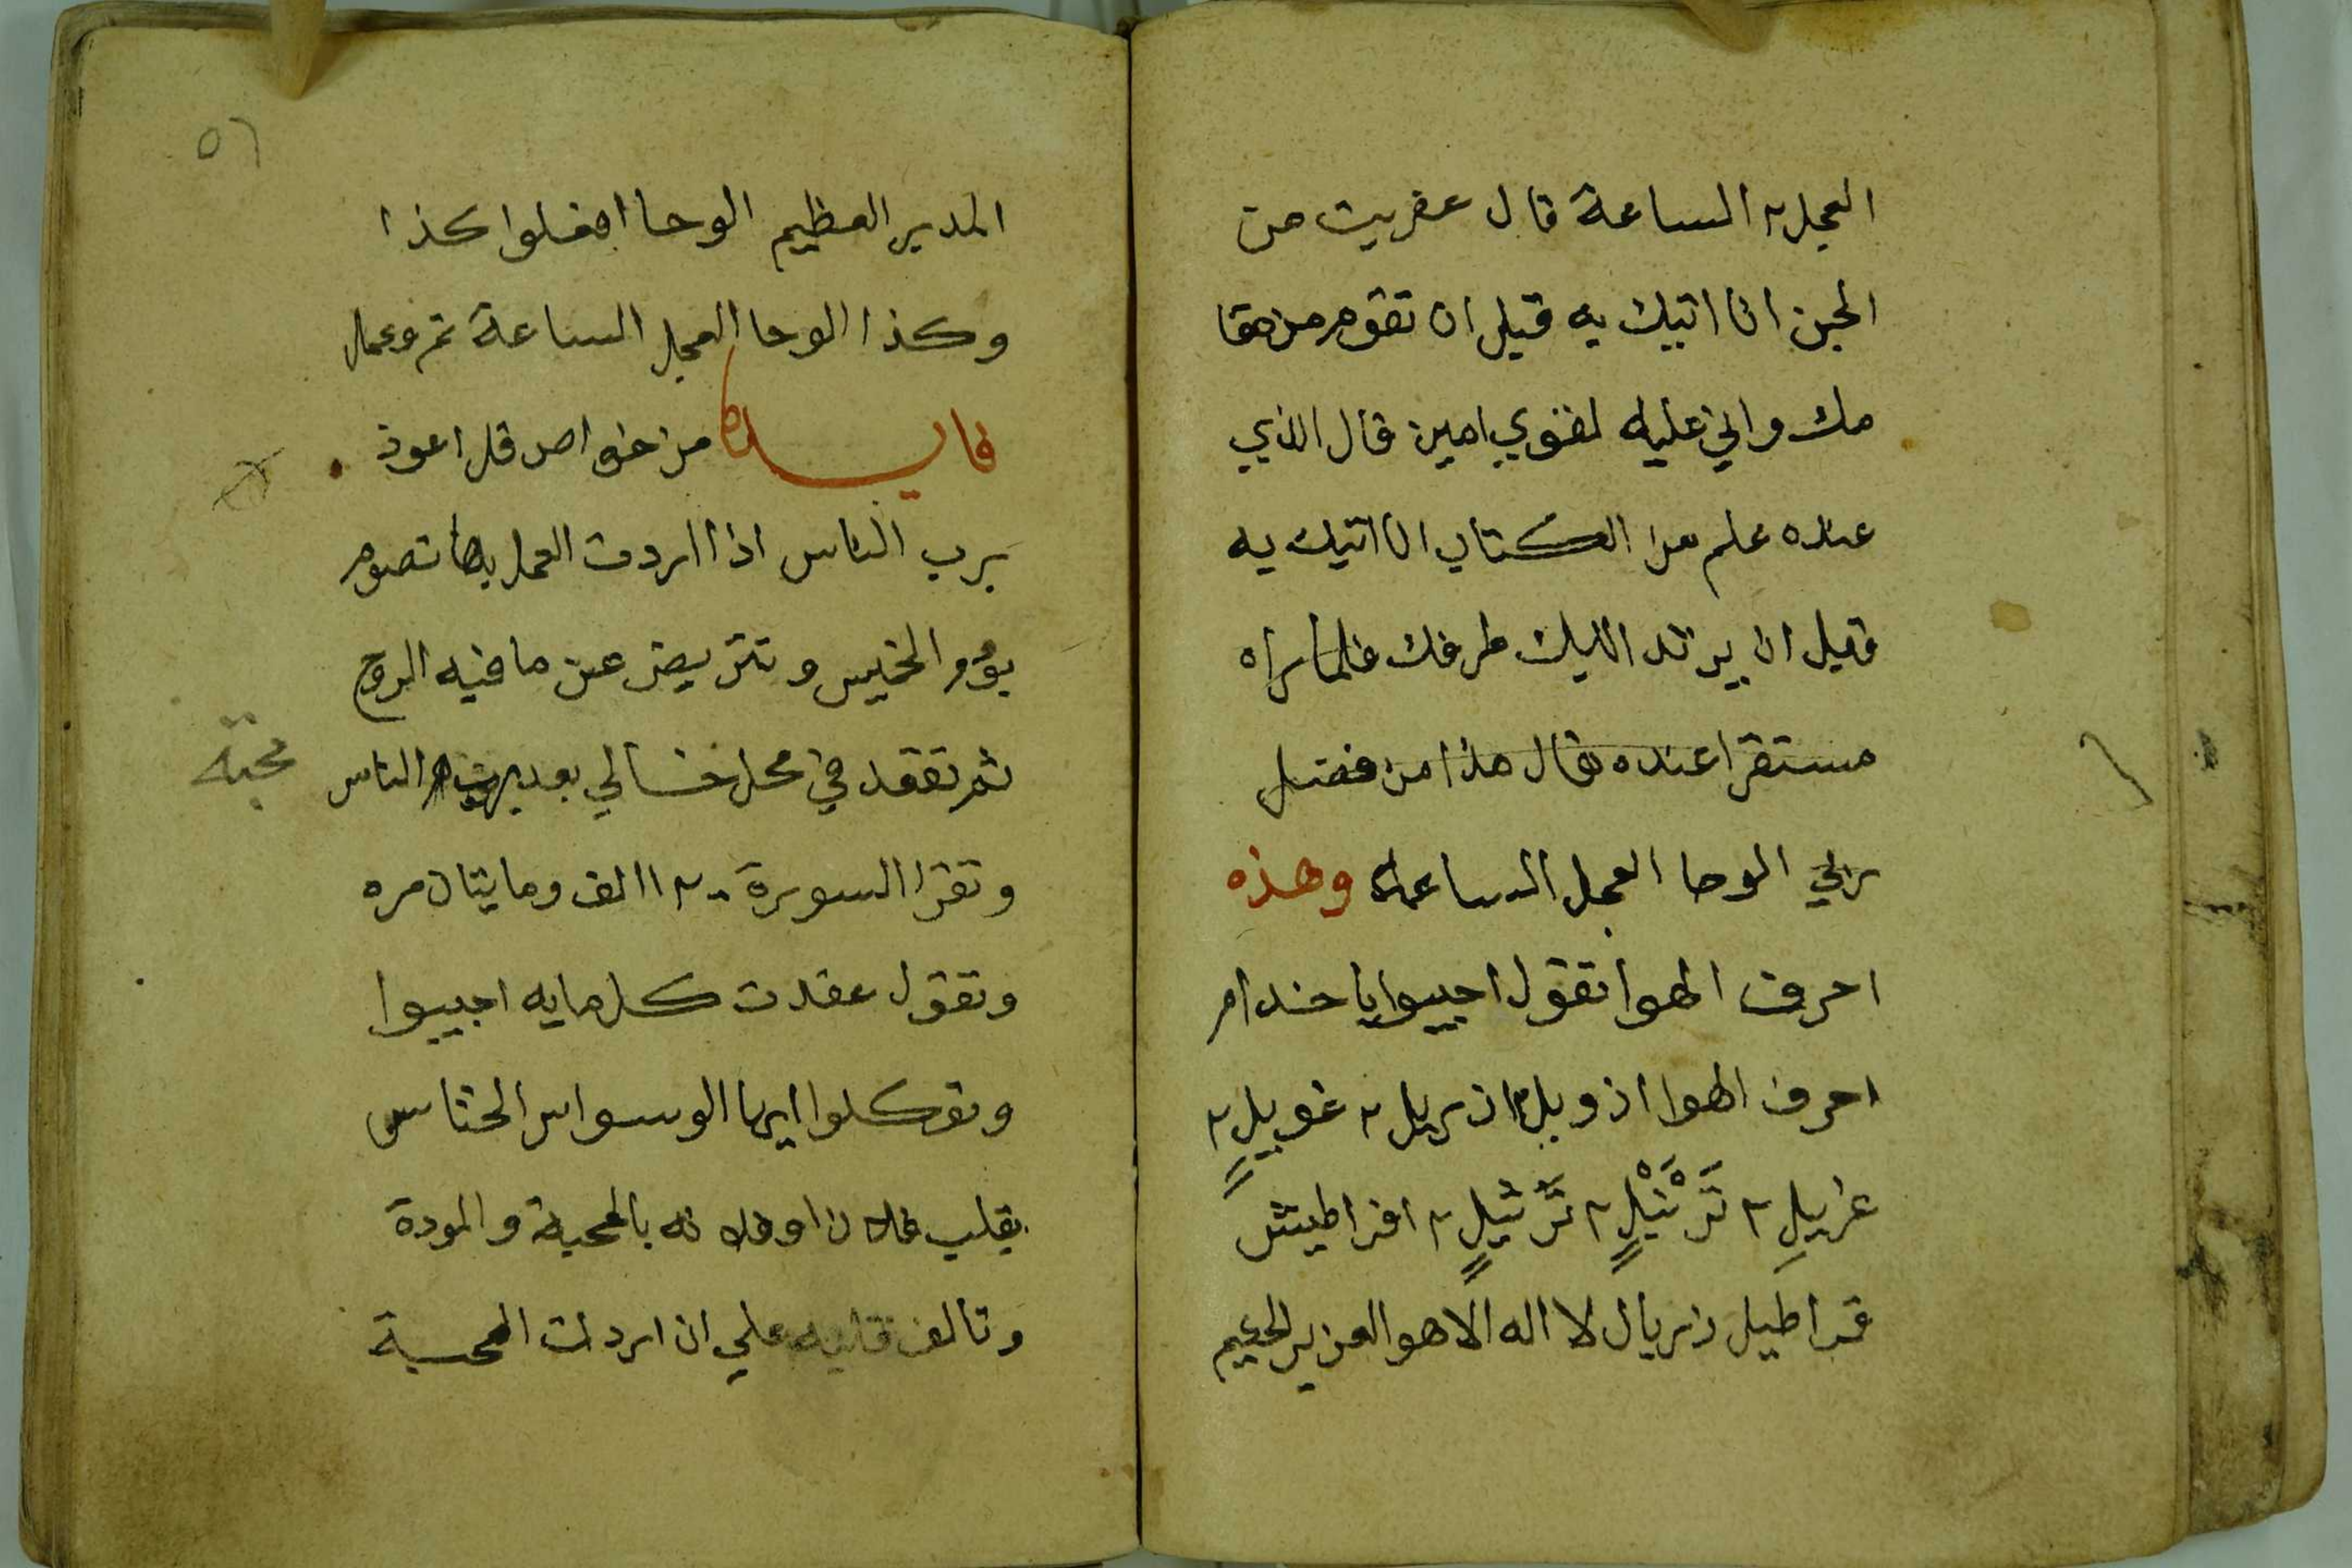 العجل ٢ الساعة قال عفريت من
الجن انا اتيك به قبل ان تقوم من مقا
مك واني عليه لقوي امين قال الذي
عنده علم من الكتاب انا اتيك به
قبل ان يرتد اليك طرفك فلما راه
مستقرا عنده قال هذا من فضل
ربي الوحا العجل الساعة وهذه
احرف الهوا تقول اجيبوا يا خدام
احرف الهوا ازويل ٢ ازريل ٢ غوييل ٢
عزيلِ ٢ تَرْنَيْلٍ ٢ تَرْثيلٍ ٢ افراطيش
قراطيل زريال لا اله الا هو العزيز الحكيم
٥٦
المدبر العظيم الوحا افعلوا كذا
وكذا الوحا العجل الساعة تم وعمل
فايده من خواص قل اعوذ
برب الناس اذا اردت العمل بها تصوم
يوم الخميس وتتريض عن ما فيه الروح
ثم تقعد في محل خالي بعد الناس
محبة
وتقرا السورة ١٢٠٠ الف ومايتان مره
وتقول عقدت كل مايه اجيبوا
وتوكلوا ايها الوسواس الخناس
بقلب فلان او فلانه بالمحبة والمودة
وتالف قلبه علي ان اردت المحبة